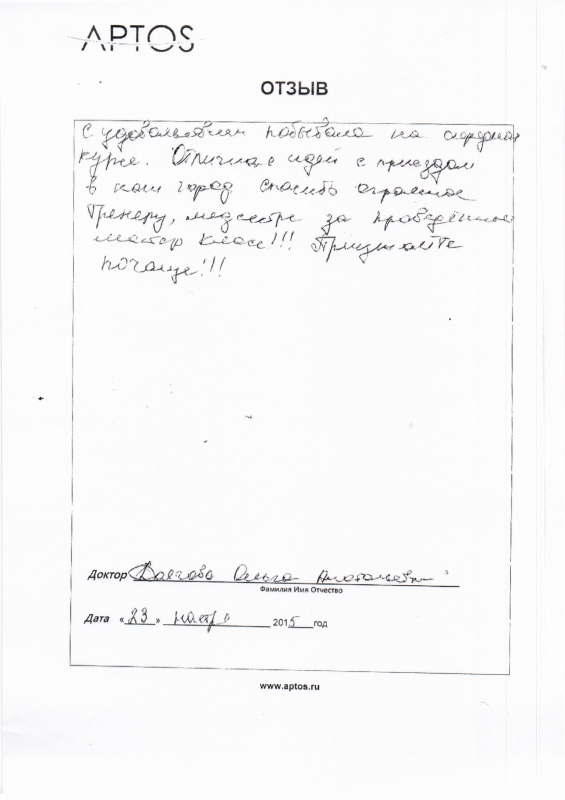 APTOS
ОТЗЫВ
С удовольствием побывала на очередном
курсе. Отличная идея с приездом
в наш город. Спасибо огромное
тренеру, медсестре за проведённый
мастер класс!!! Приезжайте
почаще!!!
Доктор Ольга Анатольевна
Фамилия Имя Отчество
Дата «23» 2015 год
www.aptos.ru